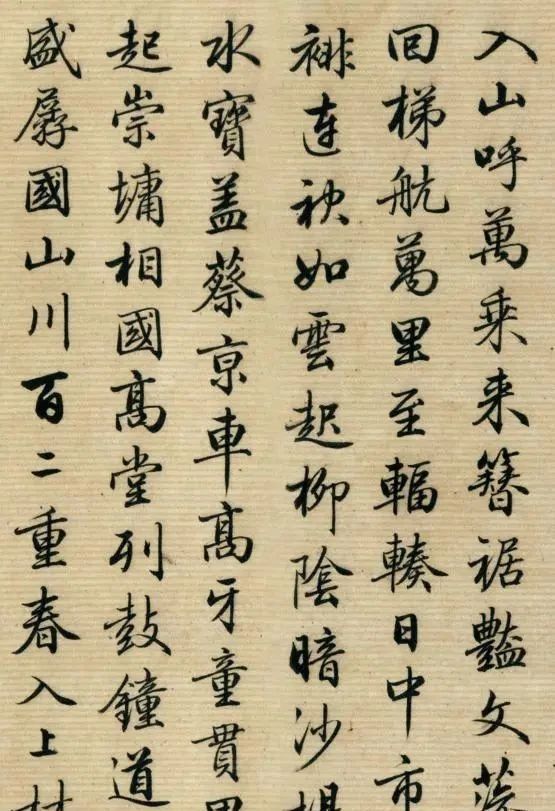 入山呼萬乘来簪裾豔文
回梯航萬里至輻輳日中市
裶連袂如雲起柳陰暗沙堤
水寶盖蔡京車高牙童貫
起崇墉相國高堂列鼓鐘道
盛孱國山川百二重春入上林